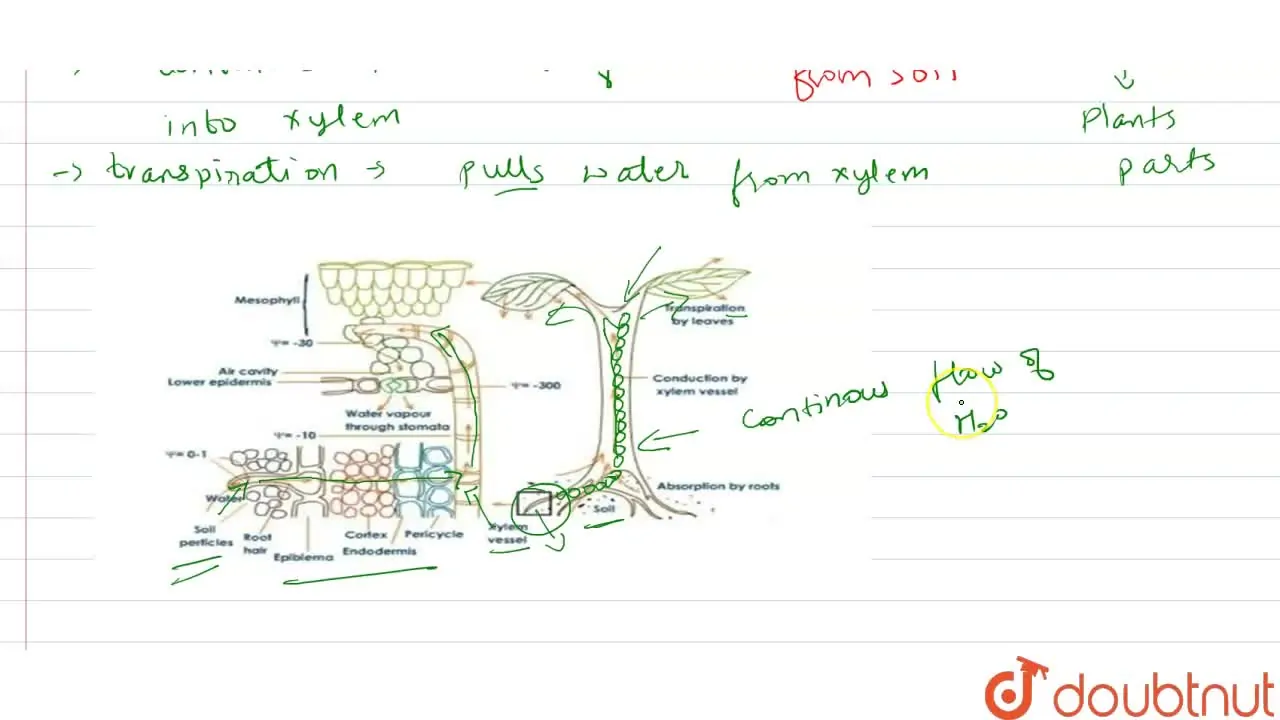 from soil
into xylem
Plants
parts
-> transpiration -> pulls water from xylem
Mesophyll
Transpiration
by leaves
Ψ= -30
Air cavity
Lower epidermis
Ψ= -300
Conduction by
xylem vessel
Water vapour
through stomata
continous flow of
H2O
Ψ= -10
Ψ= 0-1
Water
Absorption by roots
Soil
Soil
perticles
Root
hair
Epiblema
Cortex
Endodermis
Pericycle
Xylem
vessel
doubtnut